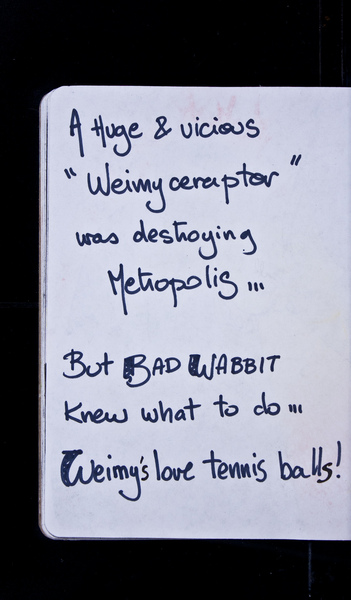 A Huge & vicious
"Weimyceraptor"
was destroying
Metropolis...
But BAD WABBIT
Knew what to do...
Weimy's love tennis balls!